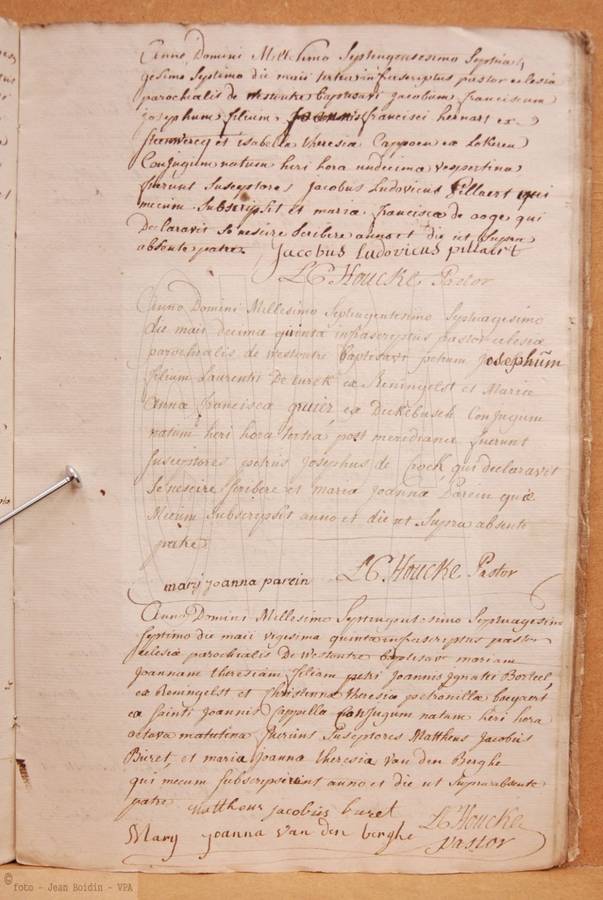 Anno Domini Millesimo Septingentesimo Septua
gesimo Septimo die maii tertia infrascriptus pastor eclesiæ
parochialis de westoutre baptisavi jacobum franciscum
josephum filium joannis francisci hernart ex
steenwercq et isabella theresia Cappoen ex Lokeren
Conjugum natum heri hora undecima vespertina
fuerunt Susceptores jacobus Ludovicus pillaert qui
mecum Subscripsit et maria francisca de ooge qui
Declaravit Se nescire Scribere anno et die ut Supra
absente patre
Jacobus Ludovicus pillaert
LC. Houcke Pastor
Anno Domini Millesimo Septingentesimo Septuagesimo
die maii decima quinta infrascriptus pastor eclesiæ
parochialis de westoutre baptisavi petrum josephum
filium Laurentii De turck ex Reningelst et Maria
Anna francisca quier ex Dickebusch Conjugum
natum heri hora tertia post meridiana fuerunt
Susceptores petrus josephus de Crock qui declaravit
Se nescire Scribere et maria joanna Parein quæ
Mecum Subscripsit anno et die ut Supra absente
patre
marij joanna parein
LC. Houcke Pastor
Anno Domini Millesimo Septingentesimo Septuagesimo
Septimo die maii vigesima quinta infrascriptus pastor
eclesiæ parochialis De westoutre baptisavi mariam
joannam theresiam filiam petri joannis jgnatii
ex Reningelst et Christienna theresia petronilla
ex Sainti joannis Cappella Conjugum natam heri hora
octava matutina fuerunt Susceptores Mattheus jacobus
Buret et maria joanna theresia van den Berghe
qui mecum Subscripserunt anno et die ut Supra absente
patre
Mattheus jacobus buret
LC. Houcke
Pastor
Mary joanna van den berghe
© foto - Jean Boidin - VPA